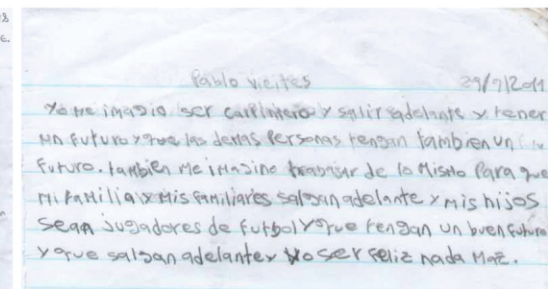 Pablo vieites 29/9/2011
Yo me imagio ser carpintero y salir adelante y tener
un futuro y que las demas Personas tengan tambien un
Futuro. tambien me imagino trabajar de lo Mismo Para que
Mi familia y Mis familiares salgan adelante y mis hijos
sean jugadores de futbol y que tengan un buen futuro
y que salgan adelante y yo ser feliz nada maz.